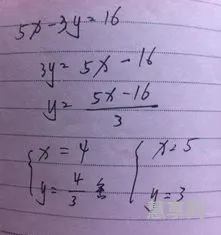 5x-3y=16
3y=5x-16
y=\frac{5x-16}{3}
{x=4 {x=5
y=\frac{4}{3} y=3